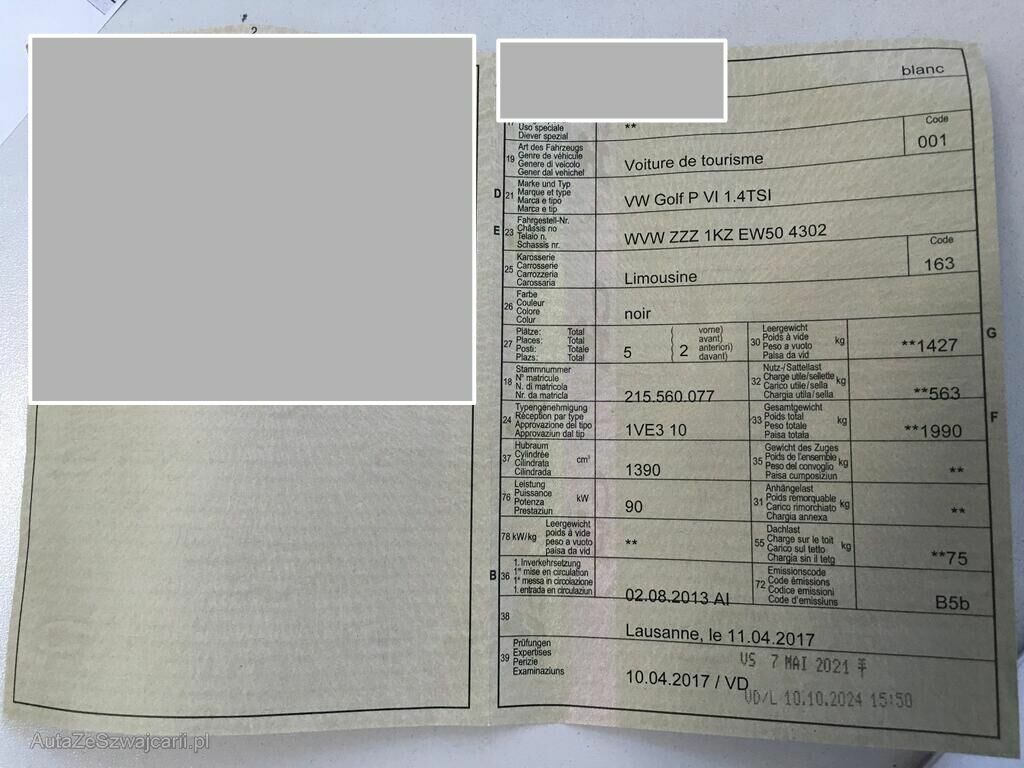 2
blanc
Uso speciale
Diever spezial
**
19
Art des Fahrzeugs
Genre de véhicule
Genere di veicolo
Gener dal vehichel
Voiture de tourisme
Code
001
D 21
Marke und Typ
Marque et type
Marca e tipo
Marca e tip
VW Golf P VI 1.4TSI
E 23
Fahrgestell-Nr.
Châssis no
Telaio n.
Schassis nr.
WVW ZZZ 1KZ EW50 4302
25
Karosserie
Carrosserie
Carrozzeria
Carossaria
Limousine
Code
163
26
Farbe
Couleur
Colore
Colur
noir
27
Plätze: Total
Places: Total
Posti: Totale
Plazs: Total
5
2
vorne)
avant)
anteriori)
davant)
30
Leergewicht
Poids à vide
Peso a vuoto
Paisa da vid
kg
**1427
G
18
Stammnummer
N° matricule
N. di matricola
Nr. da matricla
215.560.077
32
Nutz-/Sattellast
Charge utile/sellette
Carico utile/sella
Chargia utila/sella
kg
**563
24
Typengenehmigung
Réception par type
Approvazione del tipo
Approvaziun dal tip
1VE3 10
33
Gesamtgewicht
Poids total
Peso totale
Paisa totala
kg
**1990
F
37
Hubraum
Cylindrée
Cilindrata
Cilindrada
cm³
1390
35
Gewicht des Zuges
Poids de l'ensemble
Peso del convoglio
Paisa cumposiziun
kg
**
76
Leistung
Puissance
Potenza
Prestaziun
kW
90
31
Anhängelast
Poids remorquable
Carico rimorchiato
Chargia annexa
kg
**
78 kW/kg
Leergewicht
poids à vide
peso a vuoto
paisa da vid
**
55
Dachlast
Charge sur le toit
Carico sul tetto
Chargia sin il tetg
kg
**75
B 36
1. Inverkehrsetzung
1re mise en circulation
1a messa in circolazione
1. entrada en circulaziun
02.08.2013 AI
72
Emissionscode
Code émissions
Codice emissioni
Code d'emissiuns
B5b
38
Lausanne, le 11.04.2017
39
Prüfungen
Expertises
Perizie
Examinaziuns
10.04.2017 / VD
VS 7 MAI 2021
VD/L 10.10.2024 15:50
AutaZeSzwajcarii.pl